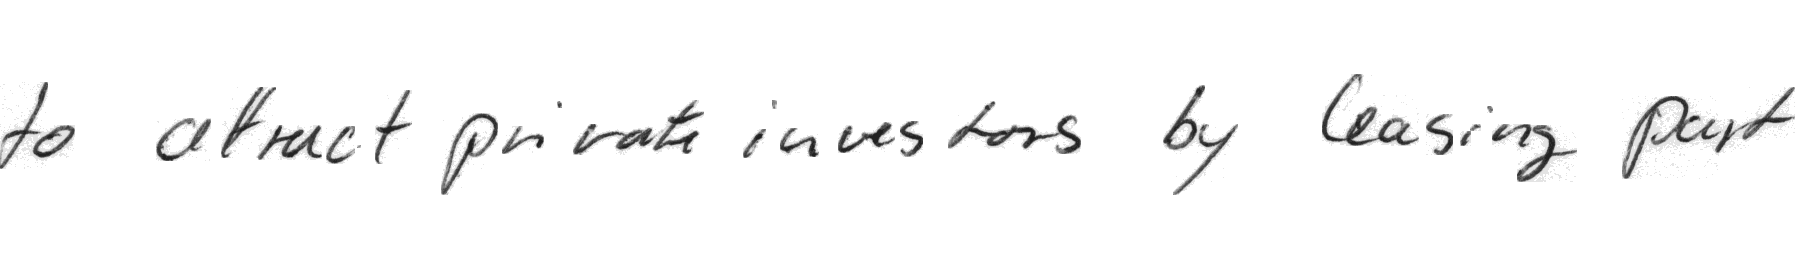 to attract private investors by leasing part